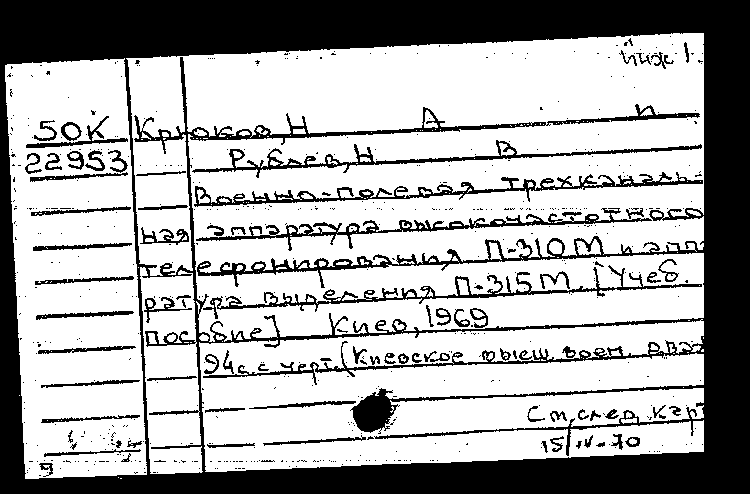 нижн 1
50К Крюков, Н А и
22953 Рублев, Н В
Военно-полевая трехканаль-
ная аппаратура высокочастотного
телефонирования П-310М и аппа
ратура выделения П-315М. [Учеб.
пособие] Киев, 1969
94с. с черт. (Киевское высш. воен. два
См. след. кар
15/IV-70